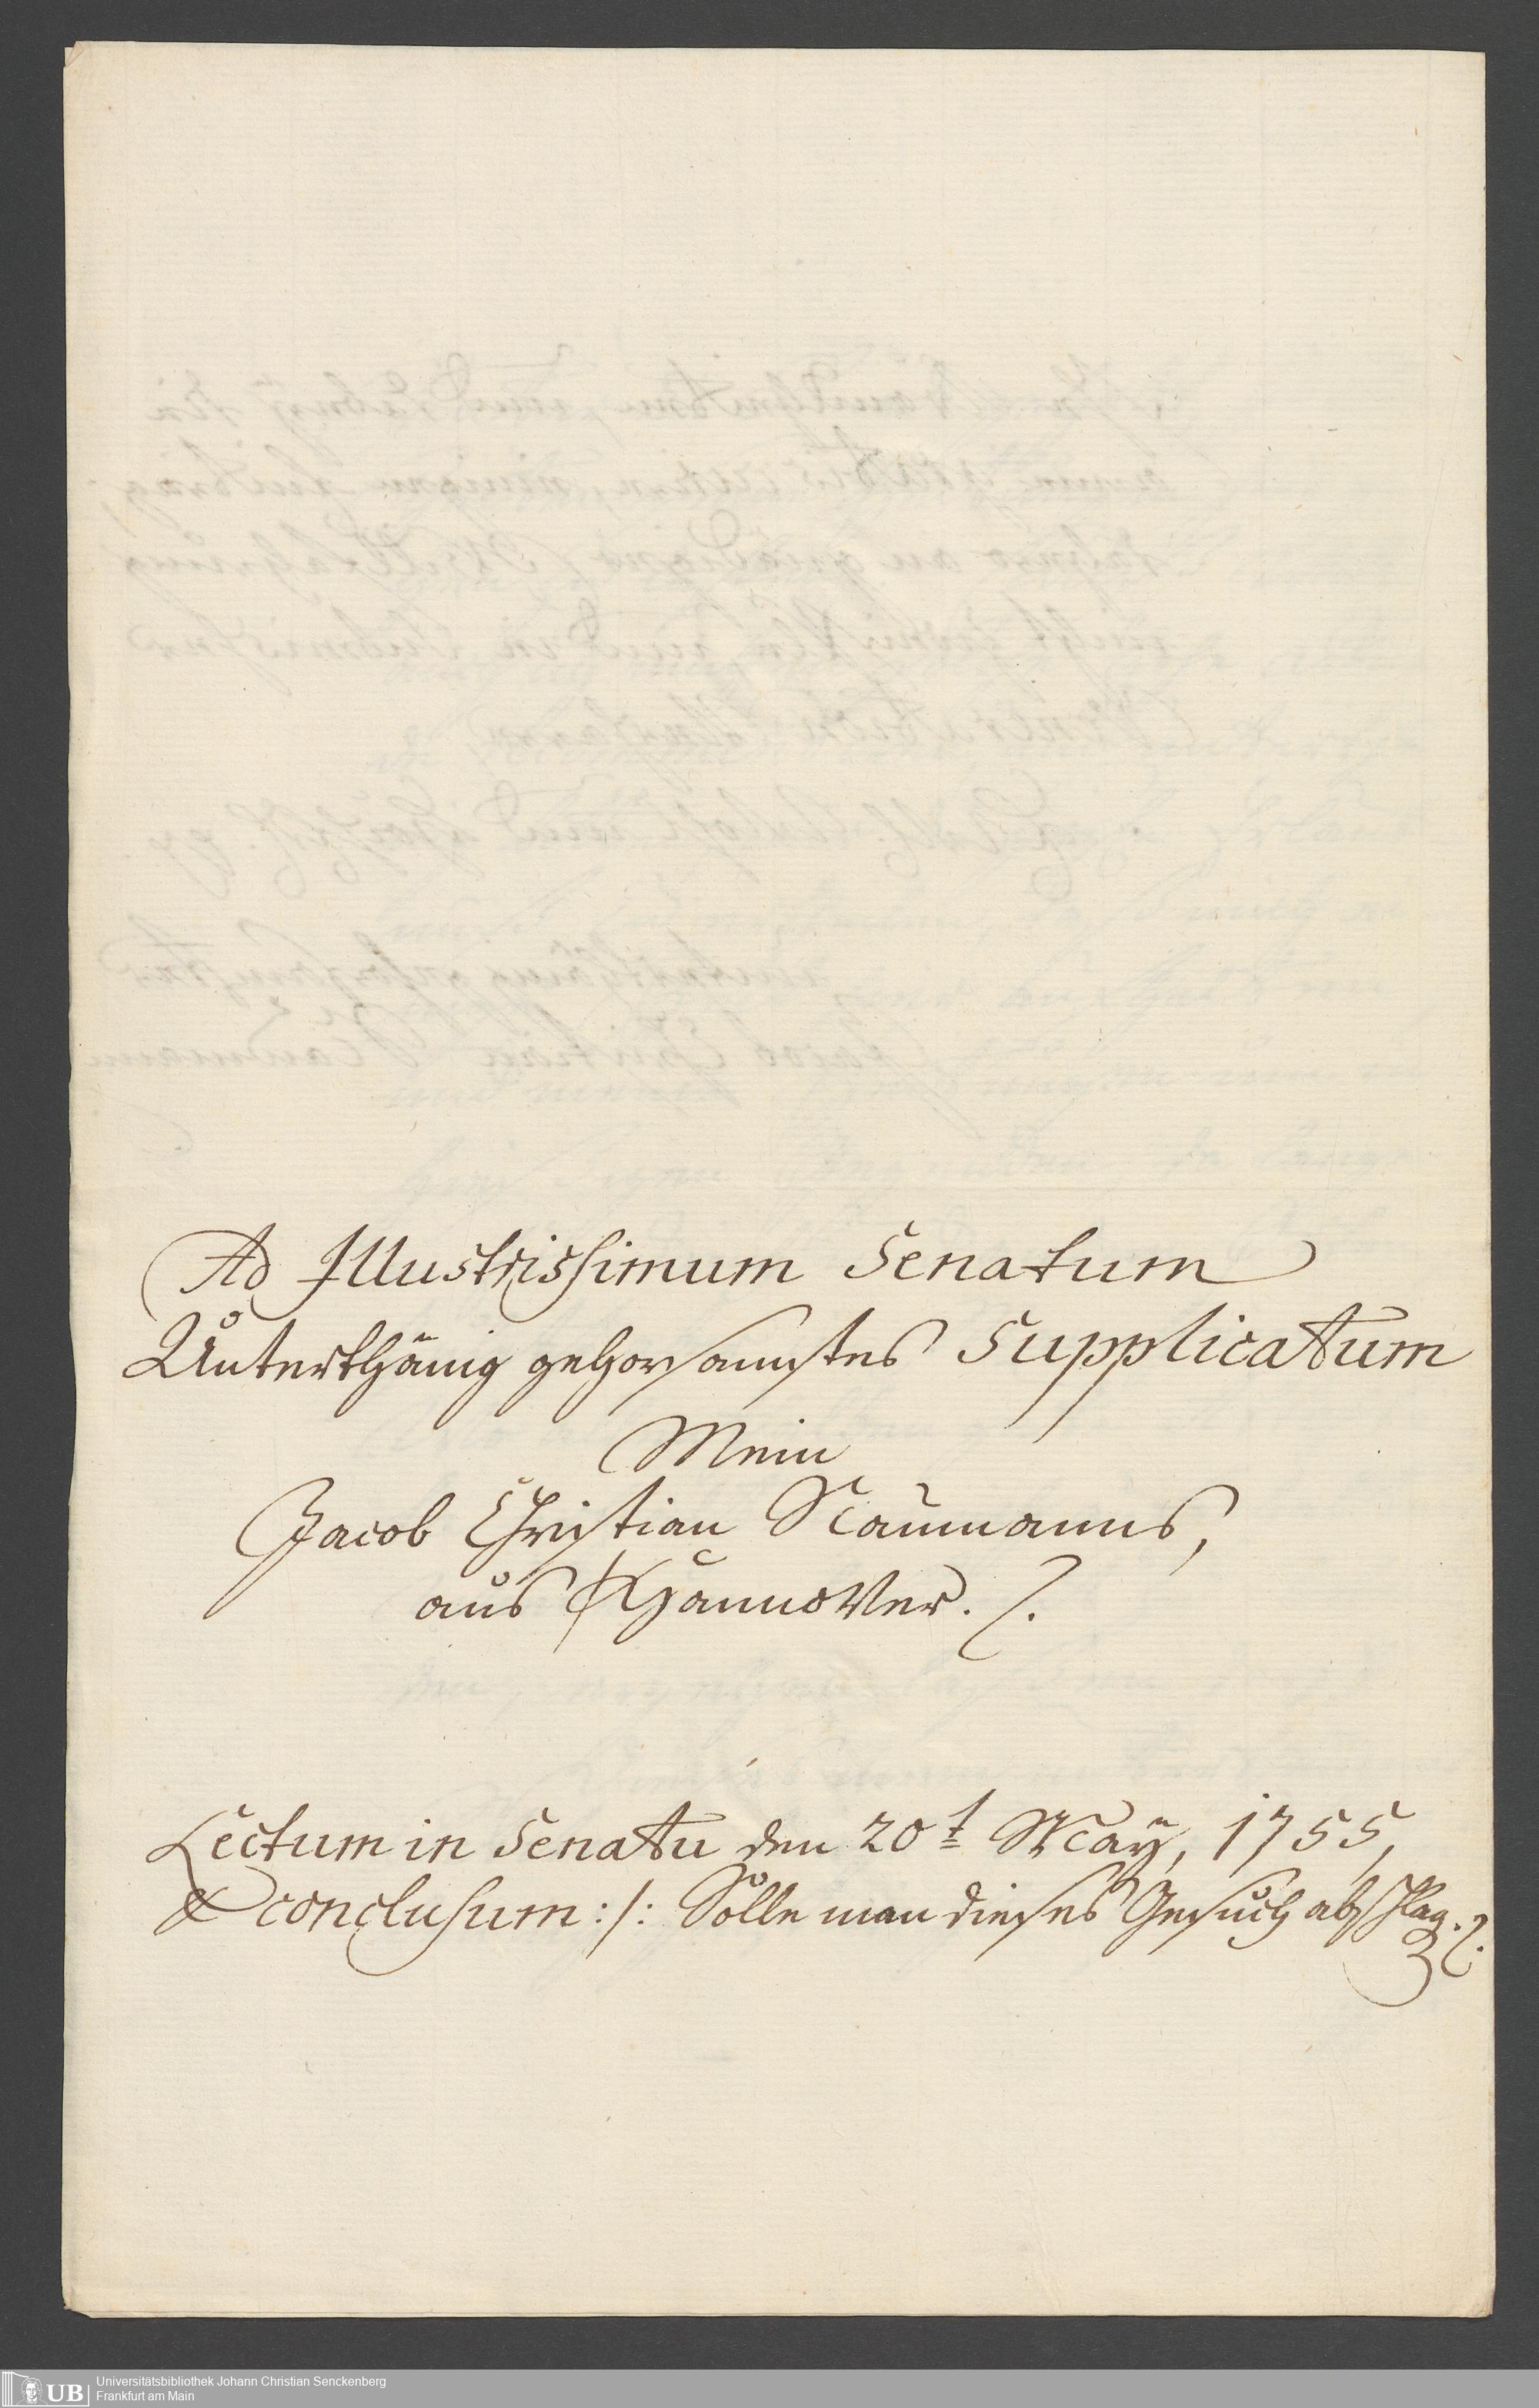 Ad Illustrissimum Senatum
Unterthänig gehorsamstes Supplicatum
Mein
Jacob Christian Naumanns,
aus Hannover. /.
Lectum in Senatu den 20t May, 1755,
& conclusum :/: Solle man dieses Gesuch abschlag. /.
UB
Universitätsbibliothek Johann Christian Senckenberg
Frankfurt am Main